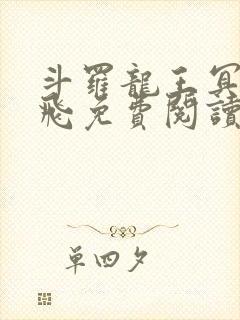 斗羅龍王冥
飛免費閱讀
單四夕